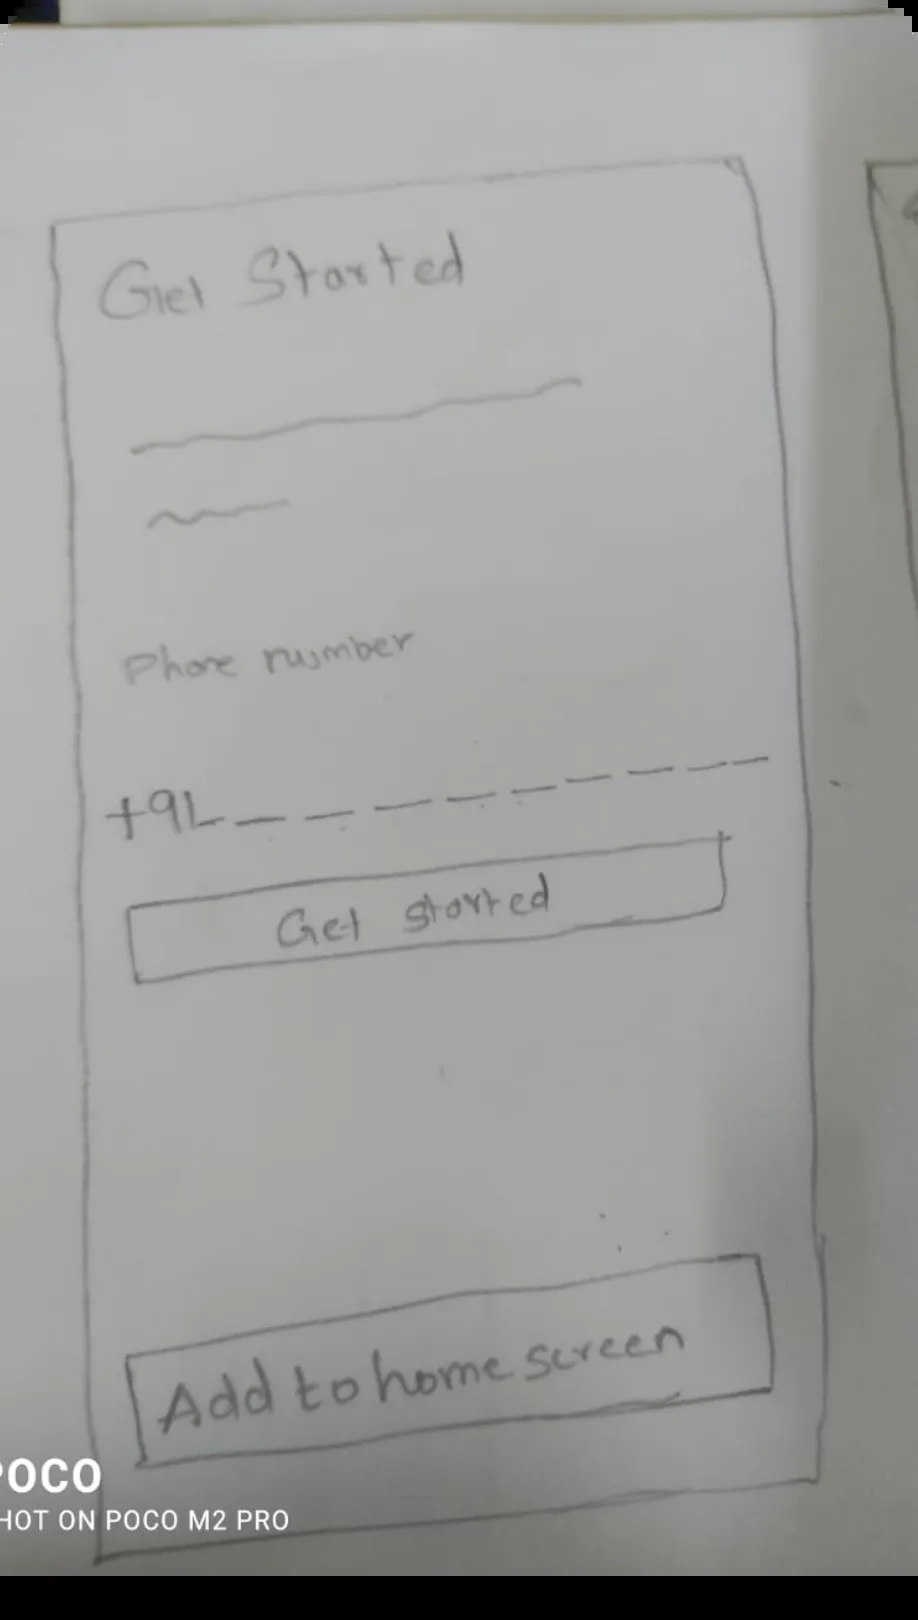 Get Started
Phone number
+91 _ _ _ _ _ _ _ _
Get started
Add to home screen
POCO
SHOT ON POCO M2 PRO